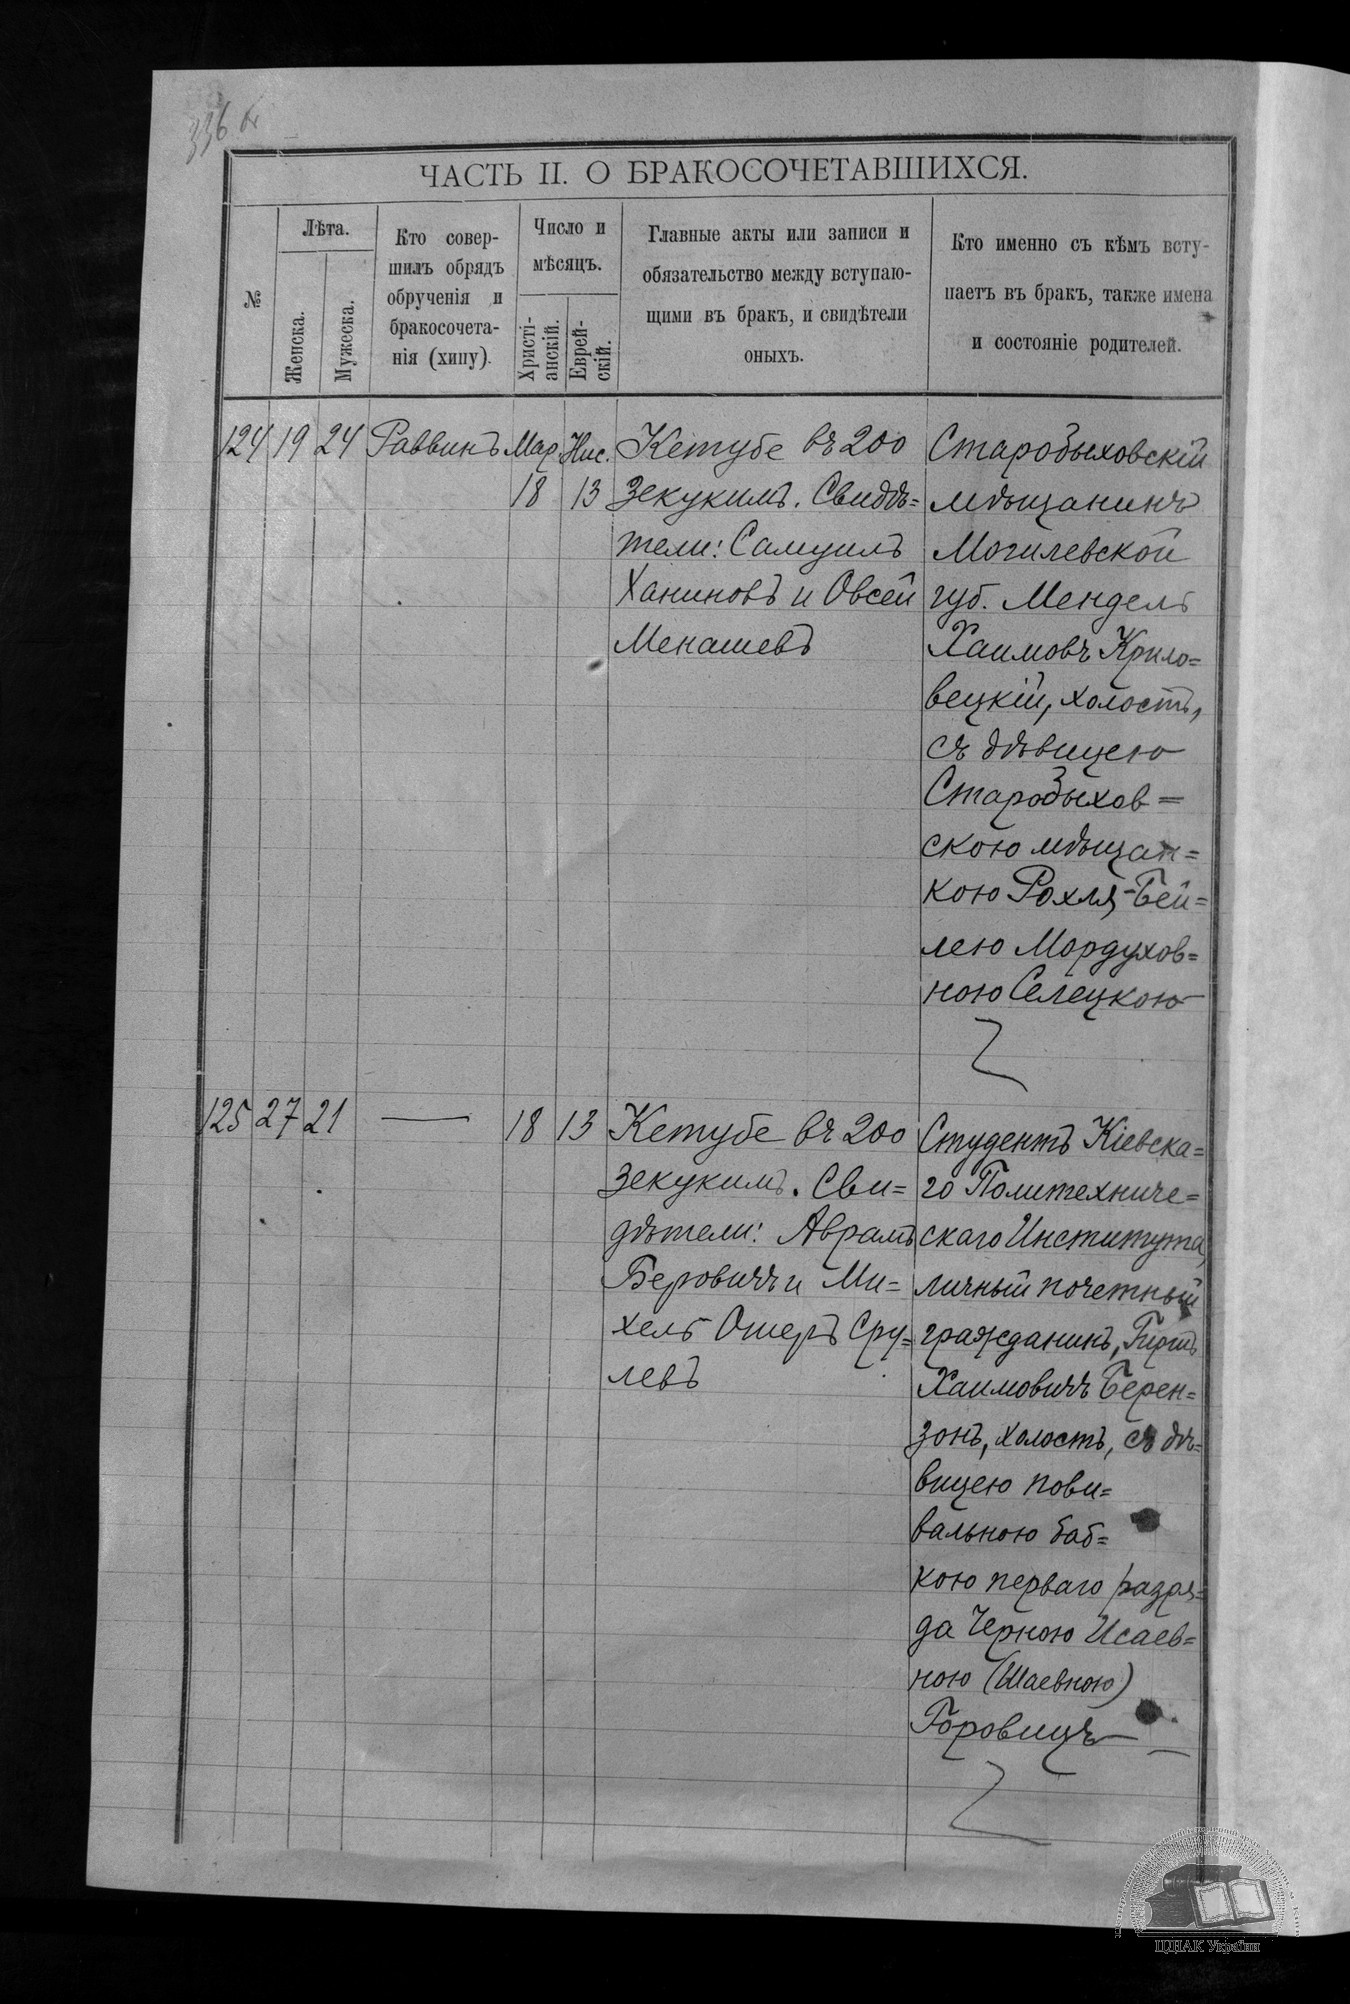 336 об
ЧАСТЬ II. О БРАКОСОЧЕТАВШИХСЯ.
№
Лѣта.
Женска.
Мужеска.
Кто совер-
шилъ обрядъ
обрученія и
бракосочета-
нія (хипу).
Число и
мѣсяцъ.
Христі-
анскій.
Еврей-
скій.
Главные акты или записи и
обязательство между вступаю-
щими въ бракъ, и свидѣтели
оныхъ.
Кто именно съ кѣмъ всту-
паетъ въ бракъ, также имена
и состояніе родителей.
124 19 24 Раввинъ Мар. Нис.
18 13
Кетубе въ 200
зекукимъ. Свидѣ=
тели: Самуилъ
Ханиновъ и Овсей
Менашевъ
Старобыховскій
мѣщанинъ
Могилевской
губ. Мендель
Хаимовъ Крило=
вецкій, холостъ,
съ дѣвицею
Старобыхов=
скою мѣщан=
кою Рохля-Бей=
лею Мордухов=
ною Селецкою
125 27 21 — 18 13
Кетубе въ 200
зекукимъ. Сви=
дѣтели: Аврамъ
Беровичъ и Ми=
хель Ошеръ Сру=
левъ
Студентъ Кіевска=
го Политехниче=
скаго Института,
личный почетный
гражданинъ, Гиршъ
Хаимовичъ Берен=
зонъ, холостъ, съ дѣ=
вицею пови=
вальною баб=
кою перваго разря=
да Черною Исаев=
ною (Шаевною)
Горовицъ
ЦДІАК України